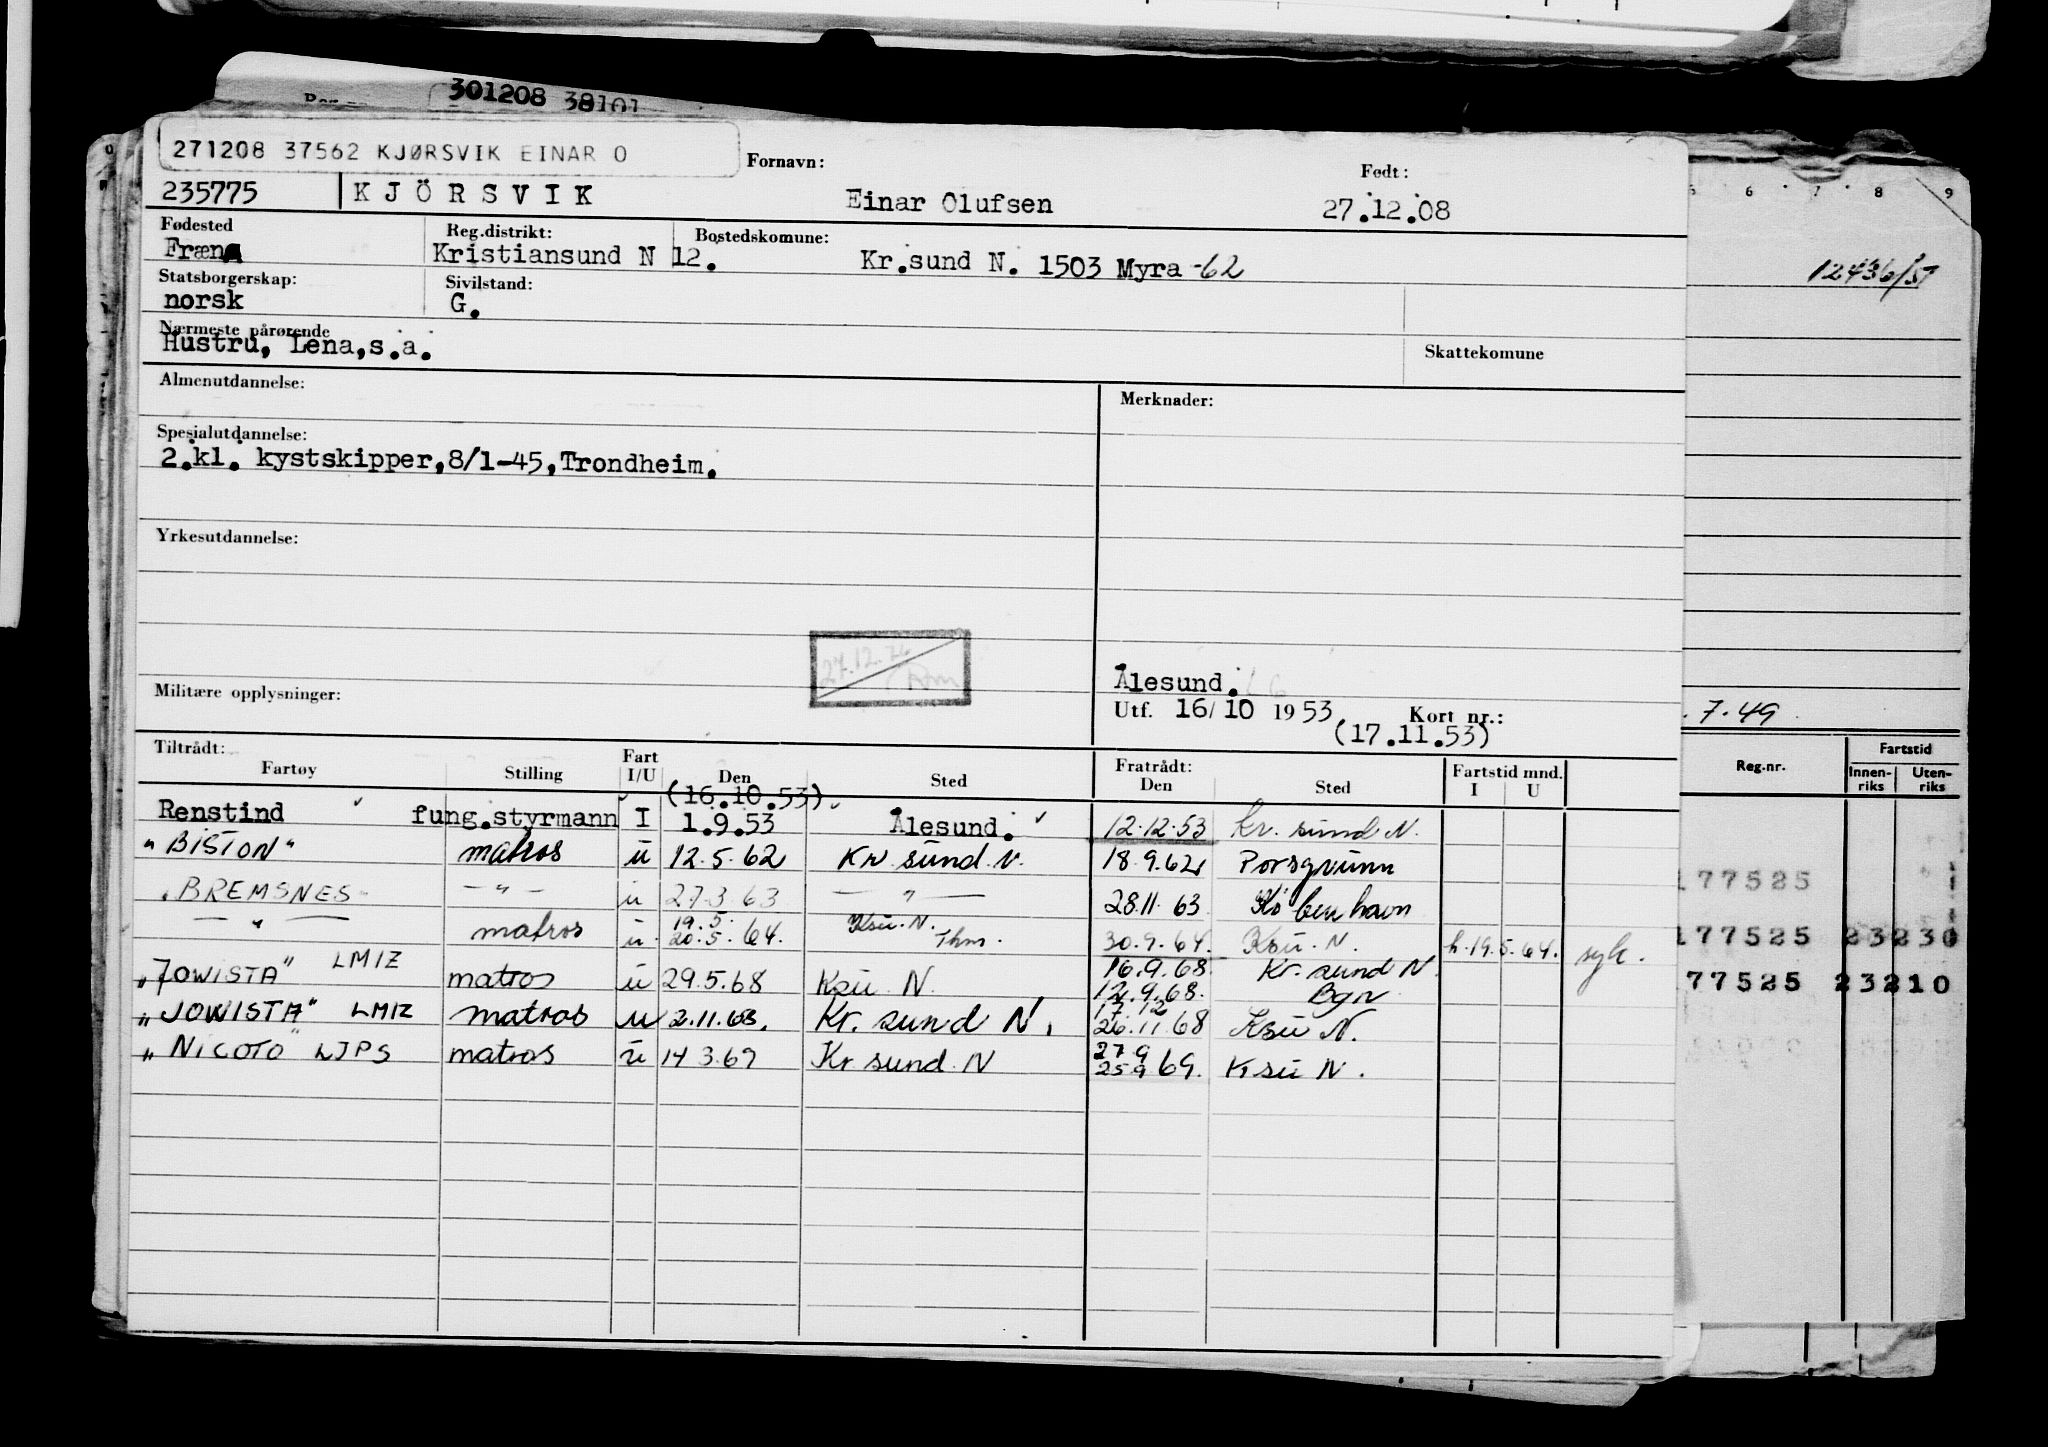 301208 38101
271208 37562 KJØRSVIK EINAR O
Fornavn:
Født:
235775 KJÖRSVIK Einar Olufsen 27.12.08
Fødested Reg.distrikt: Bostedskomune:
Fræna Kristiansund N 12. Kr.sund N. 1503 Myra -62
Statsborgerskap: Sivilstand:
norsk G.
Nærmeste pårørende
Hustru, Lena,s.a.
Skattekomune
Almenutdannelse: Merknader:
Spesialutdannelse:
2.kl. kystskipper,8/1-45,Trondheim.
Yrkesutdannelse:
27.12.76
Militære opplysninger:
Ålesund.
Utf. 16/10 1953. Kort nr.:
(17.11.53)
Tiltrådt: Fratrådt:
Fartøy Stilling Fart I/U Den Sted Den Sted Fartstid mnd. I U
(16.10.53)
Renstind fung.styrmann I 1.9.53 Ålesund. 12.12.53 Kr. sund N.
"BISTON" matros u 12.5.62 Kr sund. N. 18.9.62 Porsgrunn
"BREMSNES" — " — u 27.3.63 — " — 28.11.63 København
— " — matros u. 19.5. 20.5.64. Ksu. N. Thm. 30.9.64. Ksu. N. h.19.5.64. syk.
"JOWISTA" LMIZ matros u 29.5.68 Ksu. N. 16.9.68. Kr. sund N.
12.9.68. Bgn
"JOWISTA" LMIZ matros u 2.11.68. Kr. sund N. 17.12 26.11.68 Ksu N.
"NICOTO" LJPS matros u 14 3.69 Kr sund. N 27.9 25.9 69. Ksu N.
6 7 8 9
12436/51
.7.49
Reg.nr. Fartstid
Innenriks Utenriks
177525
177525 23230
77525 23210